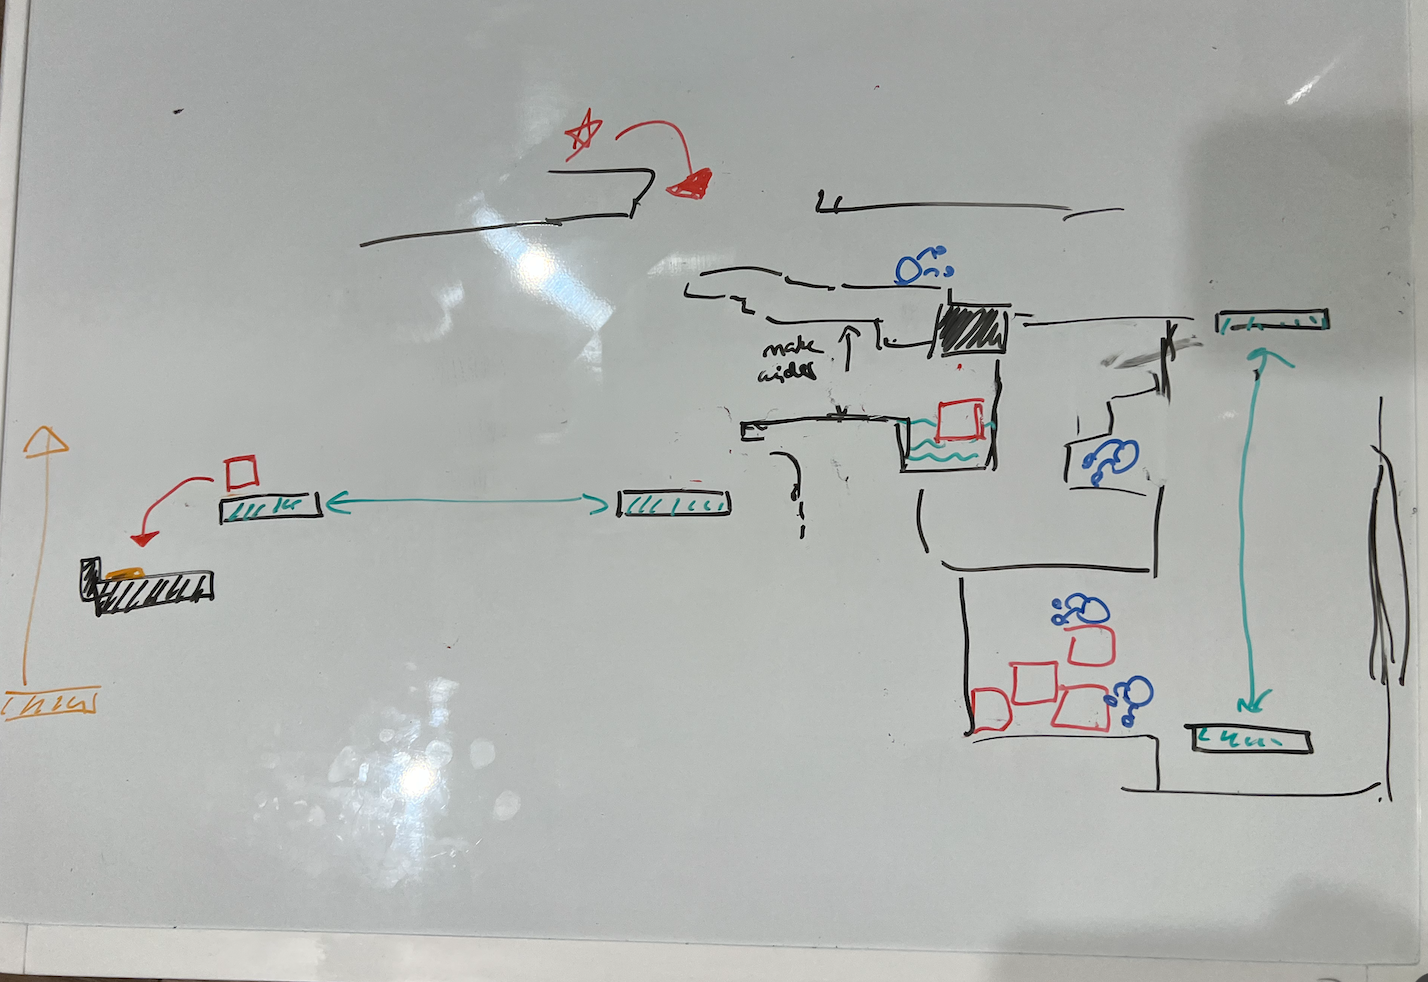 make
wider